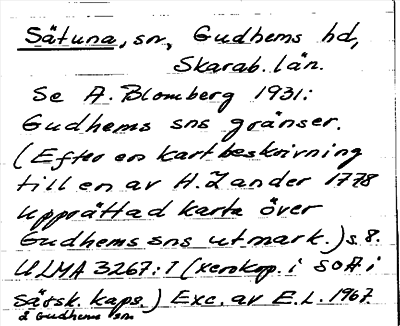 Sätuna, sn, Gudhems hd,
Skarab. län.
Se A. Blomberg 1931:
Gudhems sns gränser.
(Efter en kartbeskrivning
till en av H. Zander 1778
upprättad karta över
Gudhems sns utmark.) s. 8.
ULMA 3267:1 (xerokop. i SOA i
särsk. kaps.) Exc. av E.L. 1967.
d Gudhems sn